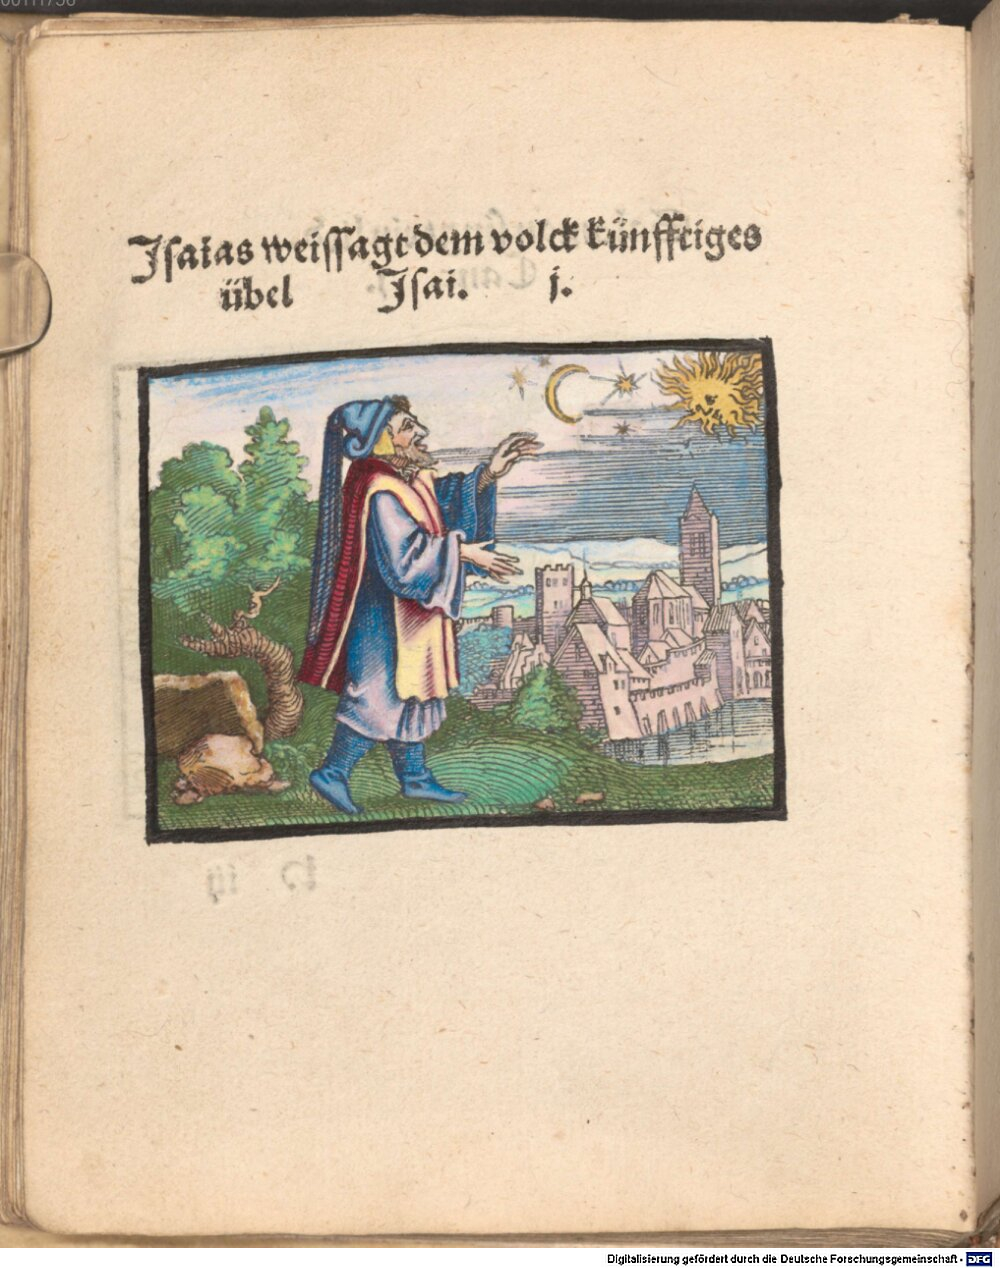 Isaias weissagt dem volck künfftiges
übel Isai. j.
Digitalisierung gefördert durch die Deutsche Forschungsgemeinschaft - DFG